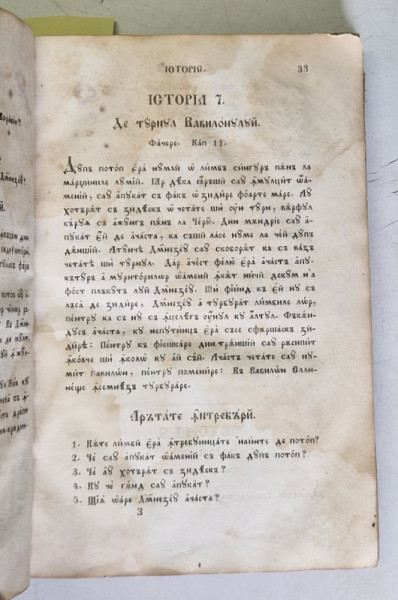 ІСТОРІЕ.
33
ІСТОРІА 7.
Де тꙋрнꙋл Вавилонꙋлꙋй.
Фачере. Кап 11.
Дꙋпъ потоп ера нꙋмай ѡ лимбъ сингꙋръ пънъ ла
марџиниле лꙋмїй. Іар дѣка
менїй, саꙋ апꙋкат съ факъ ѡ зидире фоарте маре. Аꙋ
хотърѫт съ зидѣскъ ѡ четате ши ꙋн тꙋрн,
съ ажꙋнгъ пън ла Черю. Дин мѫндріе саꙋ а-
пꙋкат ей де ачаста, ка съши ласе нꙋме ла чей дꙋпъ
дѫншїй. Атꙋнчѣ Дꙋмнезеꙋ саꙋ скоборѫт ка съ вазъ
четатѣ ши тꙋрнꙋл. Дар ачест фелю ера апꙋ-
кътꙋръ а мꙋриторилѡр ѡаменй ꙟкѫт ничй декꙋм н'а
фост плъкꙋт лꙋй Дꙋмнезеꙋ. Ши фіинд къ ей нꙋ съ
лъсá де зидире, Дꙋмнезеꙋ а тꙋрбꙋрат лимбиле лѡр,
пентрꙋ ка съ нꙋ съ ꙟцелѣгъ ꙋнꙋл кꙋ алтꙋл. Фъкѫн-
дꙋсъ ачаста, кꙋ непꙋтинцъ ера съсе сфършаскъ зи-
дирѣ: пентрꙋ къ фіешкаре дин трѫншїй саꙋ расипит
ꙟкоаче ши ꙟколѡ кꙋ ай сѣй. Ачастъ четате саꙋ нꙋ-
мит Вавилѡн, пентрꙋ поменире: Къ Вавилѡн Елли-
неще ꙟсемнѣзъ тꙋрбꙋраре.
Арътате ꙟнтребърй.
1. Кѫте лимбй ера ꙟтребꙋинцате найнте де потоп?
2. Че саꙋ апꙋкат ѡаменїй съ факъ дꙋпъ потоп?
3. Че аꙋ хотърѫт съ зидѣскъ?
4. Кꙋ че гѫнд саꙋ апꙋкат?
5. Щїа ѡаре Дꙋмнезеꙋ ачаста?
3